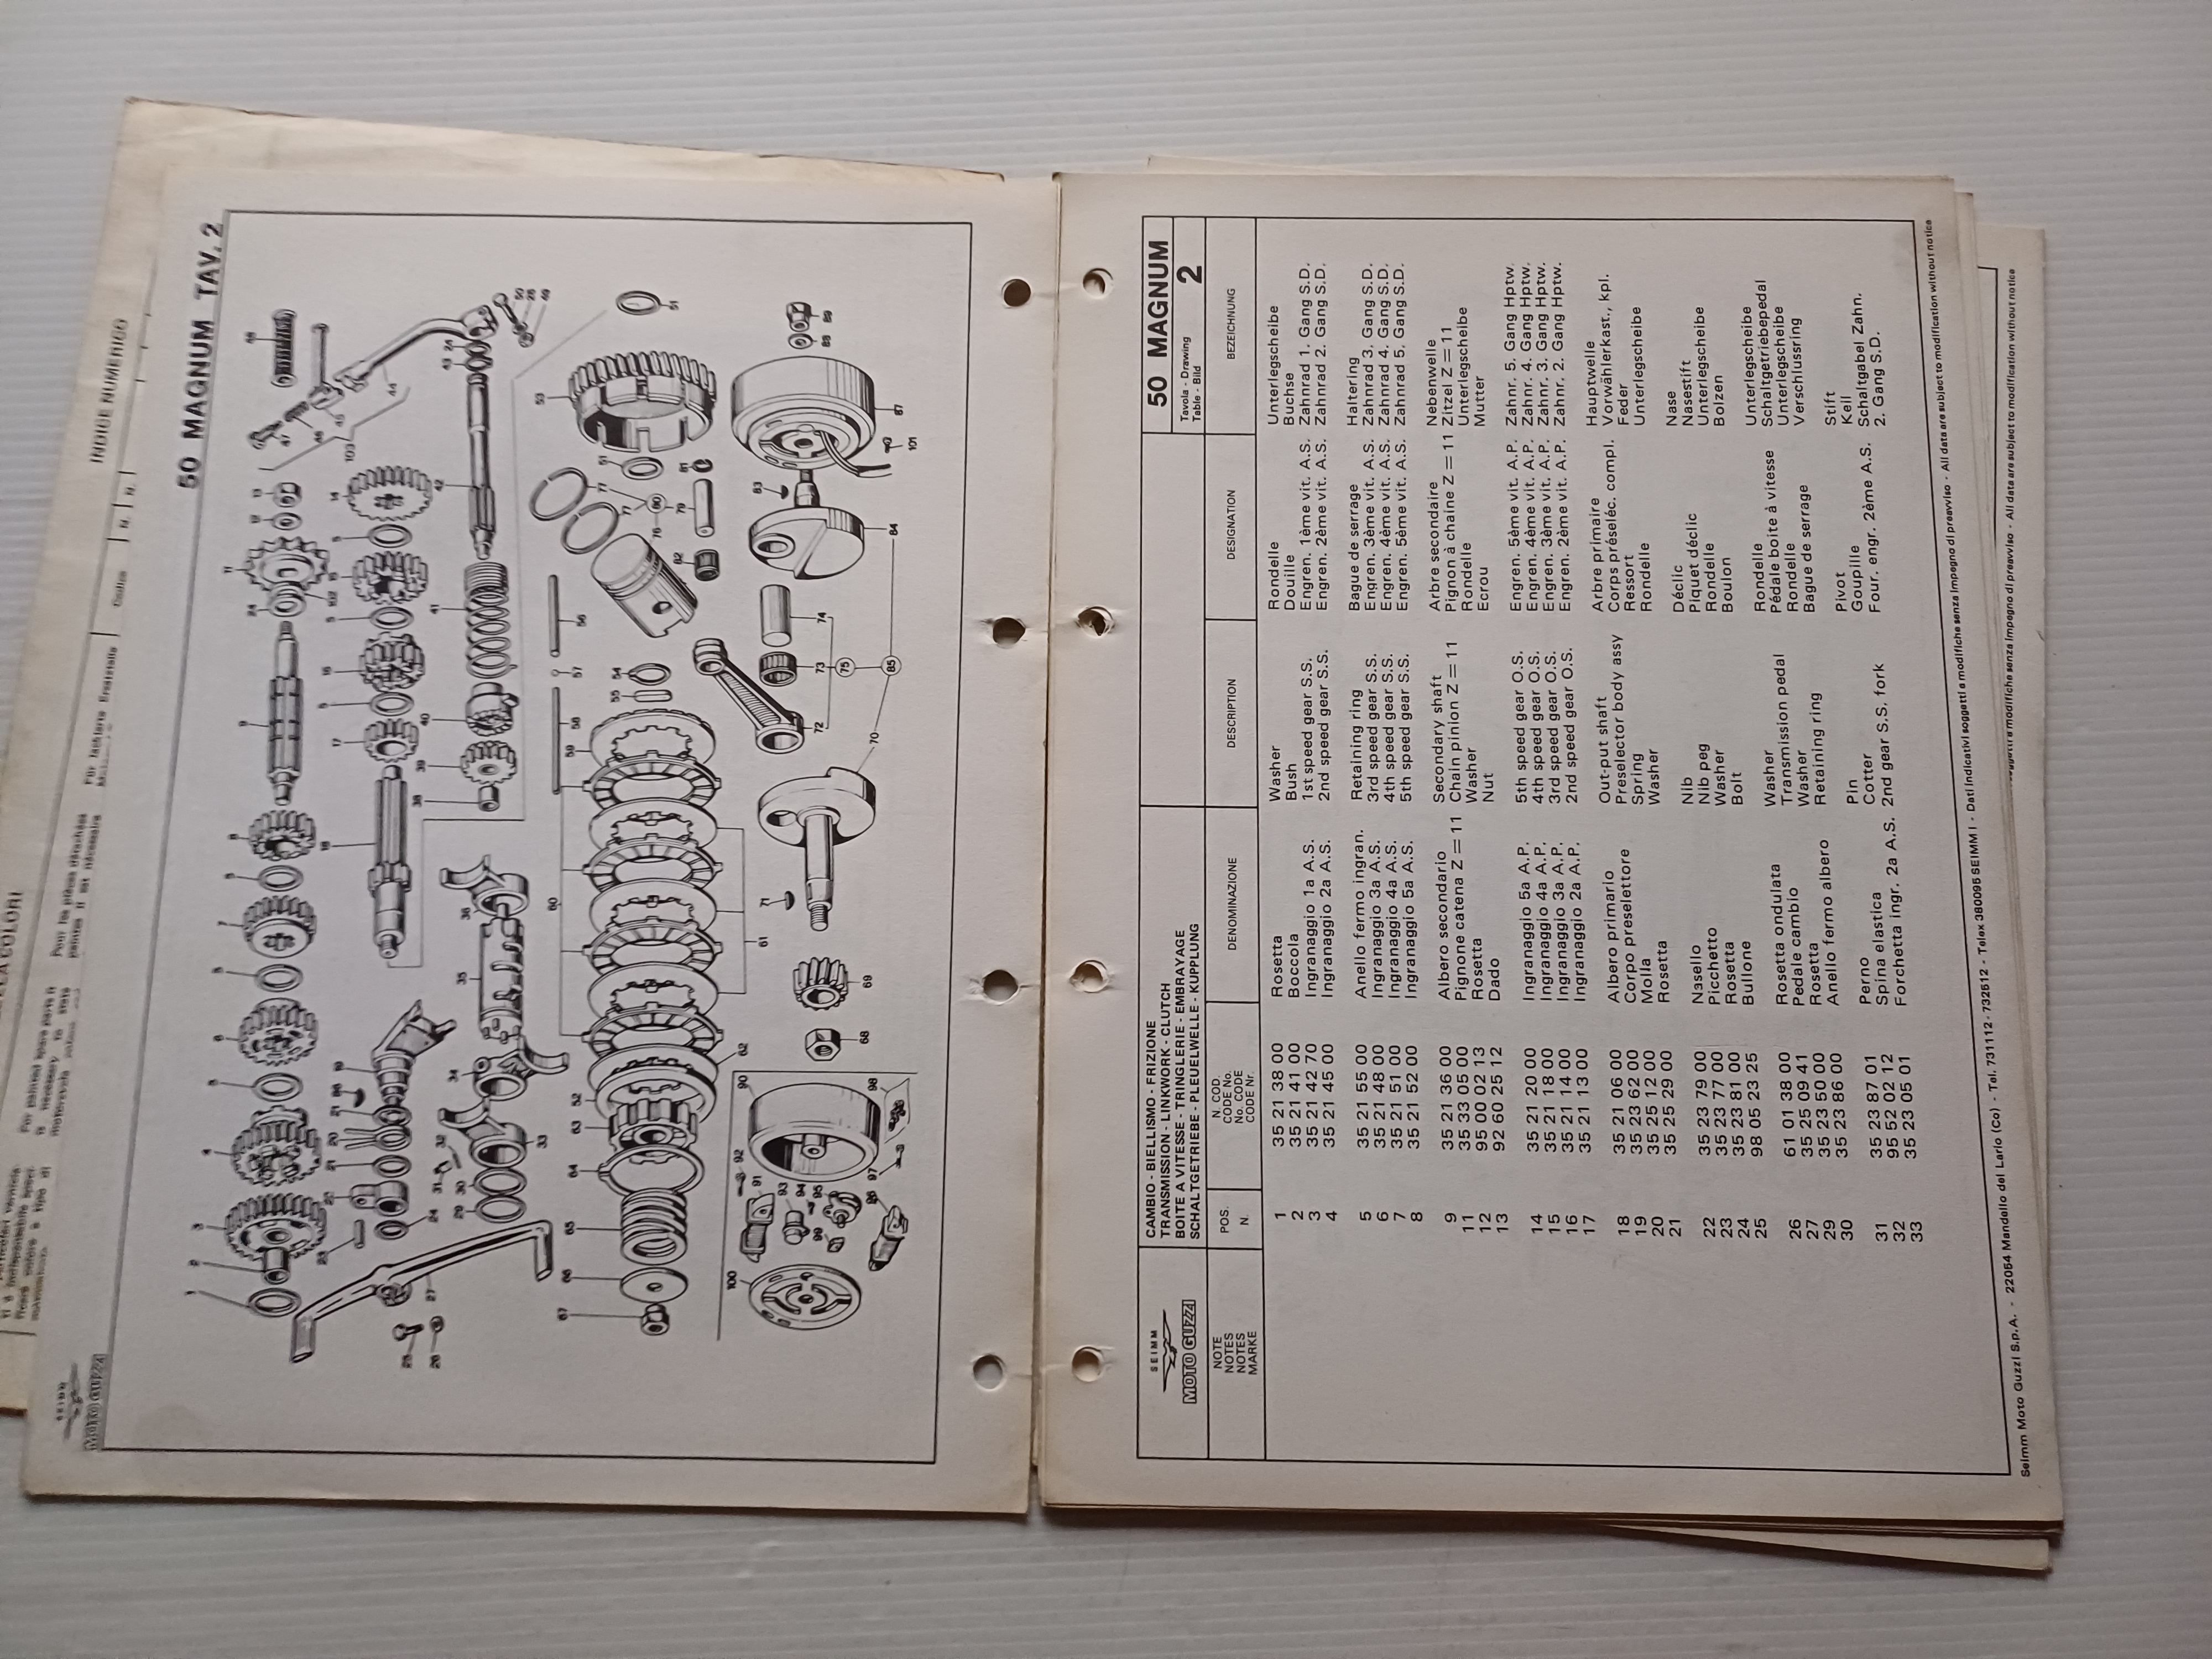 INDICE NUMERICO
50 MAGNUM TAV. 2
SEIMM
MOTO GUZZI
CAMBIO - BIELLISMO - FRIZIONE
TRANSMISSION - LINKWORK - CLUTCH
BOITE A VITESSE - TRINGLERIE - EMBRAYAGE
SCHALTGETRIEBE - PLEUELWELLE - KUPPLUNG
50 MAGNUM
Tavola - Drawing
Table - Bild
2
NOTE
NOTES
NOTES
MARKE
POS.
N.
N. COD.
CODE No.
No. CODE
CODE Nr.
DENOMINAZIONE
DESCRIPTION
DESIGNATION
BEZEICHNUNG
1 35 21 38 00 Rosetta Washer Rondelle Unterlegscheibe
2 35 21 41 00 Boccola Bush Douille Buchse
3 35 21 42 70 Ingranaggio 1a A.S. 1st speed gear S.S. Engren. 1ème vit. A.S. Zahnrad 1. Gang S.D.
4 35 21 45 00 Ingranaggio 2a A.S. 2nd speed gear S.S. Engren. 2ème vit. A.S. Zahnrad 2. Gang S.D.
5 35 21 55 00 Anello fermo ingran. Retaining ring Bague de serrage Haltering
6 35 21 48 00 Ingranaggio 3a A.S. 3rd speed gear S.S. Engren. 3ème vit. A.S. Zahnrad 3. Gang S.D.
7 35 21 51 00 Ingranaggio 4a A.S. 4th speed gear S.S. Engren. 4ème vit. A.S. Zahnrad 4. Gang S.D.
8 35 21 52 00 Ingranaggio 5a A.S. 5th speed gear S.S. Engren. 5ème vit. A.S. Zahnrad 5. Gang S.D.
9 35 21 36 00 Albero secondario Secondary shaft Arbre secondaire Nebenwelle
11 35 33 05 00 Pignone catena Z = 11 Chain pinion Z = 11 Pignon à chaine Z = 11 Zitzel Z = 11
12 95 00 02 13 Rosetta Washer Rondelle Unterlegscheibe
13 92 60 25 12 Dado Nut Ecrou Mutter
14 35 21 20 00 Ingranaggio 5a A.P. 5th speed gear O.S. Engren. 5ème vit. A.P. Zahnr. 5. Gang Hptw.
15 35 21 18 00 Ingranaggio 4a A.P. 4th speed gear O.S. Engren. 4ème vit. A.P. Zahnr. 4. Gang Hptw.
16 35 21 14 00 Ingranaggio 3a A.P. 3rd speed gear O.S. Engren. 3ème vit. A.P. Zahnr. 3. Gang Hptw.
17 35 21 13 00 Ingranaggio 2a A.P. 2nd speed gear O.S. Engren. 2ème vit. A.P. Zahnr. 2. Gang Hptw.
18 35 21 06 00 Albero primario Out-put shaft Arbre primaire Hauptwelle
19 35 23 62 00 Corpo preselettore Preselector body assy Corps préseléc. compl. Vorwählerkast., kpl.
20 35 25 12 00 Molla Spring Ressort Feder
21 35 25 29 00 Rosetta Washer Rondelle Unterlegscheibe
22 35 23 79 00 Nasello Nib Déclic Nase
23 35 23 77 00 Picchetto Nib peg Piquet déclic Nasestift
24 35 23 81 00 Rosetta Washer Rondelle Unterlegscheibe
25 98 05 23 25 Bullone Bolt Boulon Bolzen
26 61 01 38 00 Rosetta ondulata Washer Rondelle Unterlegscheibe
27 35 25 09 41 Pedale cambio Transmission pedal Pédale boite à vitesse Schaltgetriebepedal
29 35 23 50 00 Rosetta Washer Rondelle Unterlegscheibe
30 35 23 86 00 Anello fermo albero Retaining ring Bague de serrage Verschlussring
31 35 23 87 01 Perno Pin Pivot Stift
32 95 52 02 12 Spina elastica Cotter Goupille Keil
33 35 23 05 01 Forchetta ingr. 2a A.S. 2nd gear S.S. fork Four. engr. 2ème A.S. Schaltgabel Zahn.
2. Gang S.D.
Seimm Moto Guzzi S.p.A. - 22054 Mandello del Lario (Co) - Tel. 731112 - 732612 - Telex 380095 SEIMM I - Dati indicativi soggetti a modifiche senza impegno di preavviso - All data are subject to modification without notice
soggetti a modifiche senza impegno di preavviso - All data are subject to modification without notice